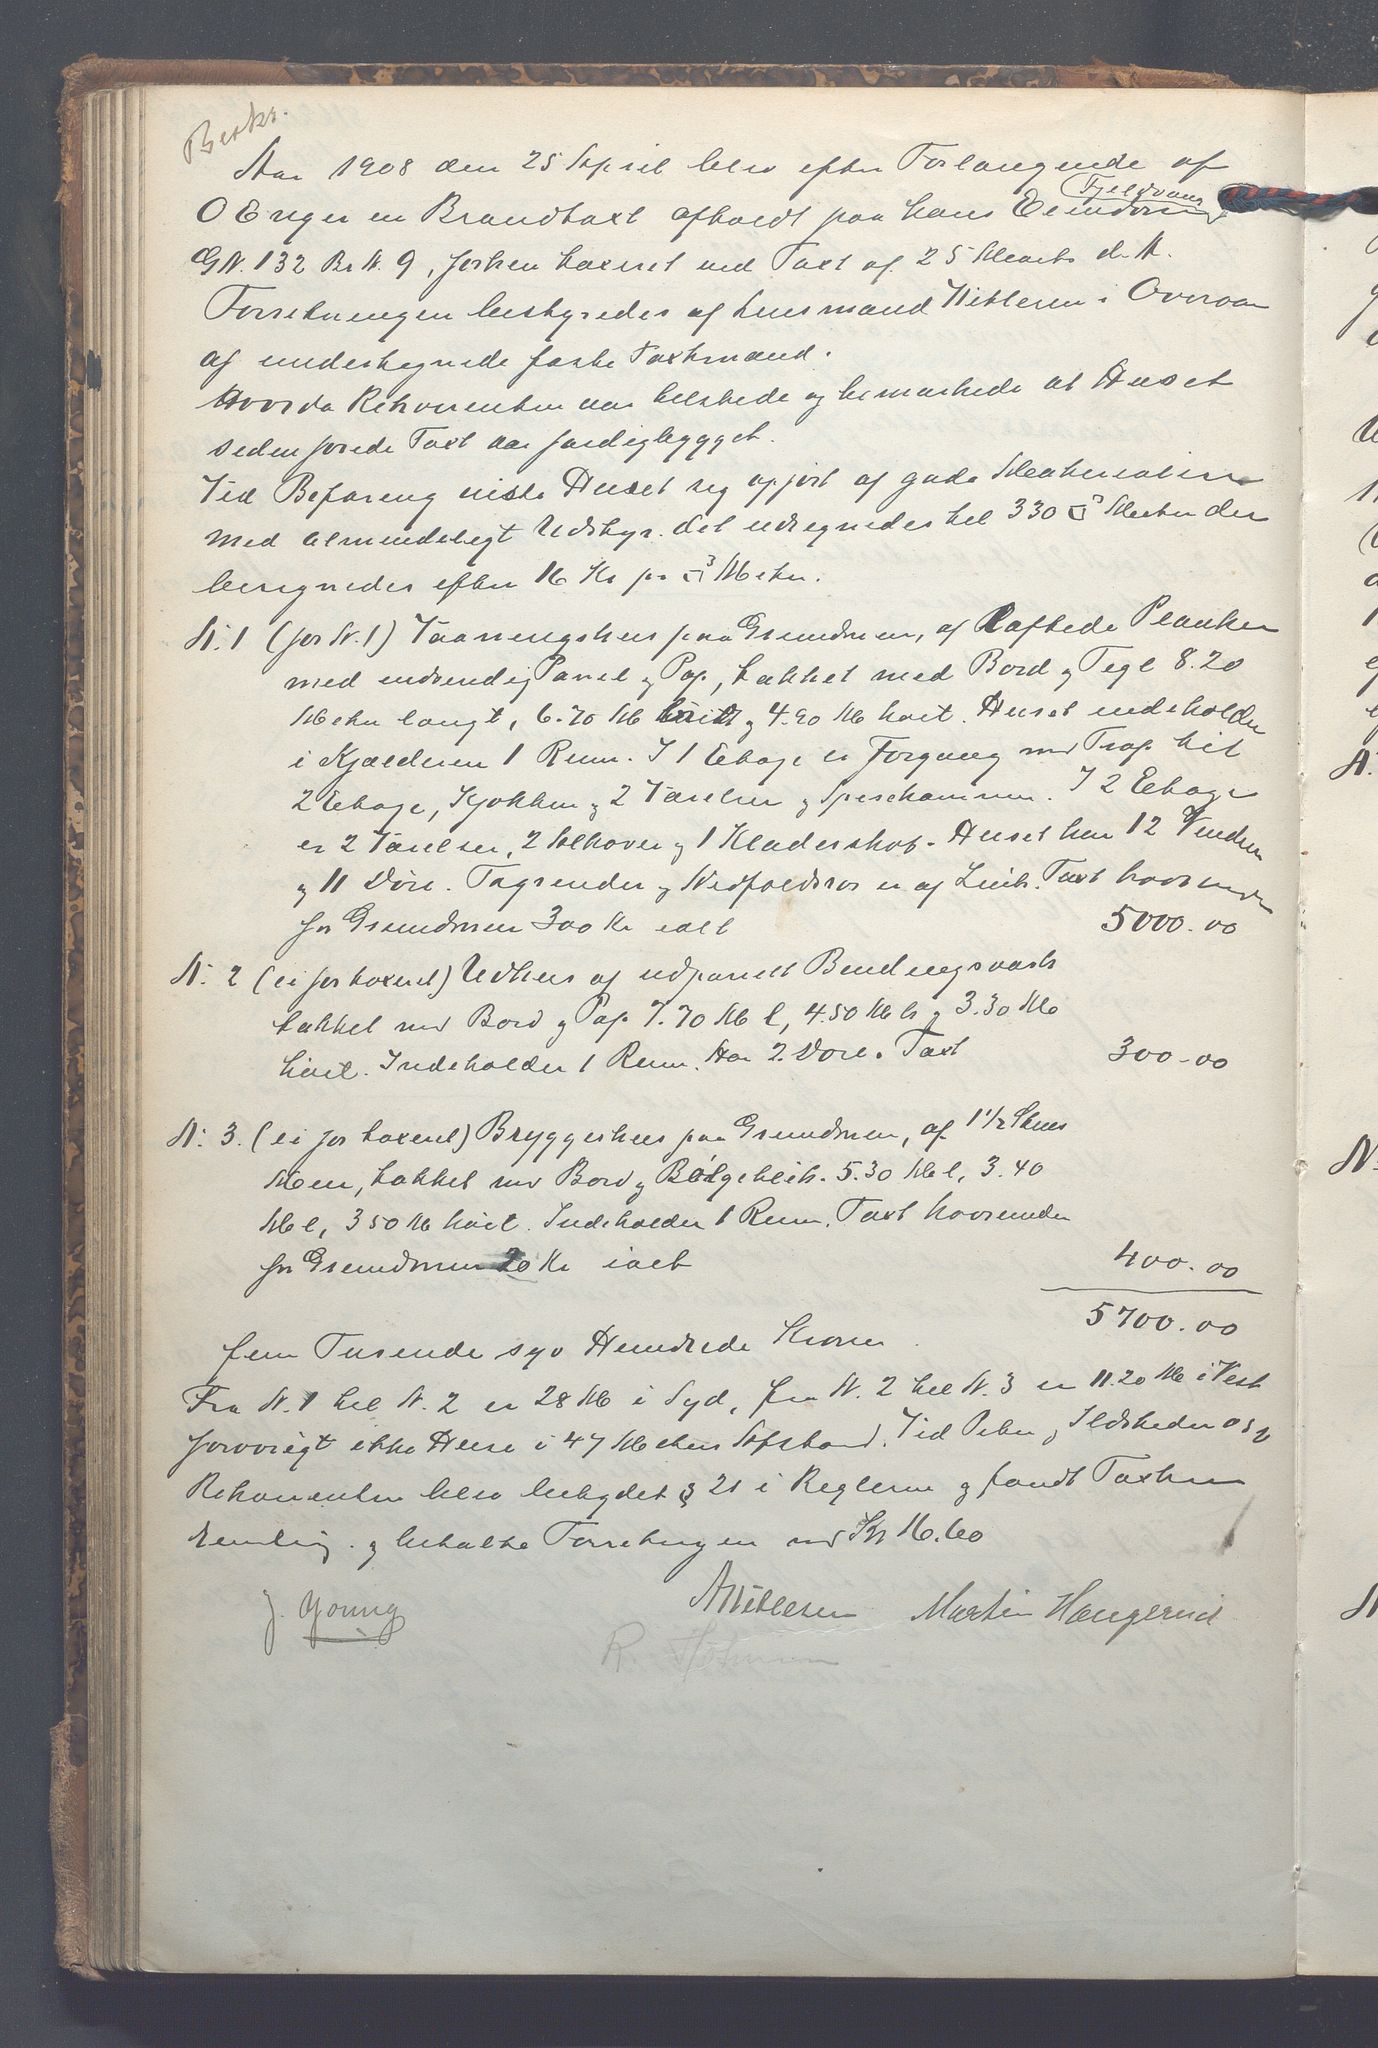 Beskr.
Aar 1908 den 25 April blev efter Forlangende af
O Enger en Brandtaxt afholdt paa hans Eiendom Fjeldvang
GN. 132 Br N. 9, forhen taxeret ved Taxt af 25 Marts d. A.
Forretningen bestyredes af Lensmand Willersen i Overvær
af undertegnede faste Taxtmænd.
Hvorda Rekvirenten var tilstede og bemærkede at Huset
siden forrige Taxt var færdigbygget.
Ved Befaring viste Huset sig opført af gode Materialier
med almindeligt Udstyr. det udregnedes til 330 □³ Meter der
beregnedes efter 16 Kr pr □³ Meter.
N. 1 (før N. 1) Vaaningshus paa Grundmur, af laftede Planker
med udvendig Panel og Pap, tækket med Bord og Tegl 8.20
Meter langt, 6.70 M bredt og 4.90 M høit. Huset indeholder
i Kjælderen 1 Rum. I 1 Etage er Forgang med Trap til
2 Etage, Kjøkken og 2 Værelser og Spisekammer. I 2 Etage
er 2 Værelser, 2 Alkover og 1 Klædeskab. Huset har 12 Vinduer
og 11 Døre. Tagrender og Nedfaldsrør er af Zink. Taxt hvorunder
for Grundmuren 300 Kr ialt 5000.00
N. 2 (ei før taxeret) Udhus af udpanelt Bindingsværk
tækket med Bord og Pap 7.70 M l, 4.50 M b og 3.30 M
høit. Indeholder 1 Rum. Har 2 Døre. Taxt 300.00
N. 3. (ei før taxeret) Bryggerhus paa Grundmur, af 1 1/2 Stens
Mur, tækket med Bord og Bølgeblik. 5.30 M l, 3.40
M l, 3 50 M høit. Indeholder 1 Rum. Taxt hvorunder
for Grundmuren 20 Kr ialt 400.00
5700.00
fem Tusende syv Hundrede Kroner
Fra N. 1 til N. 2 er 28 M i Syd, fra N. 2 til N. 3 er 11.20 M i Vest
forøvrigt ikke Huse i 47 Meters Afstand. Ved Piber og Ildsteder osv
Rekvirenten blev betydet § 21 i Reglerne og fandt Taxten
rimelig. og betalte Forretningen med Kr 16.60
J. Young AWillersen Martin Haugerud
R.